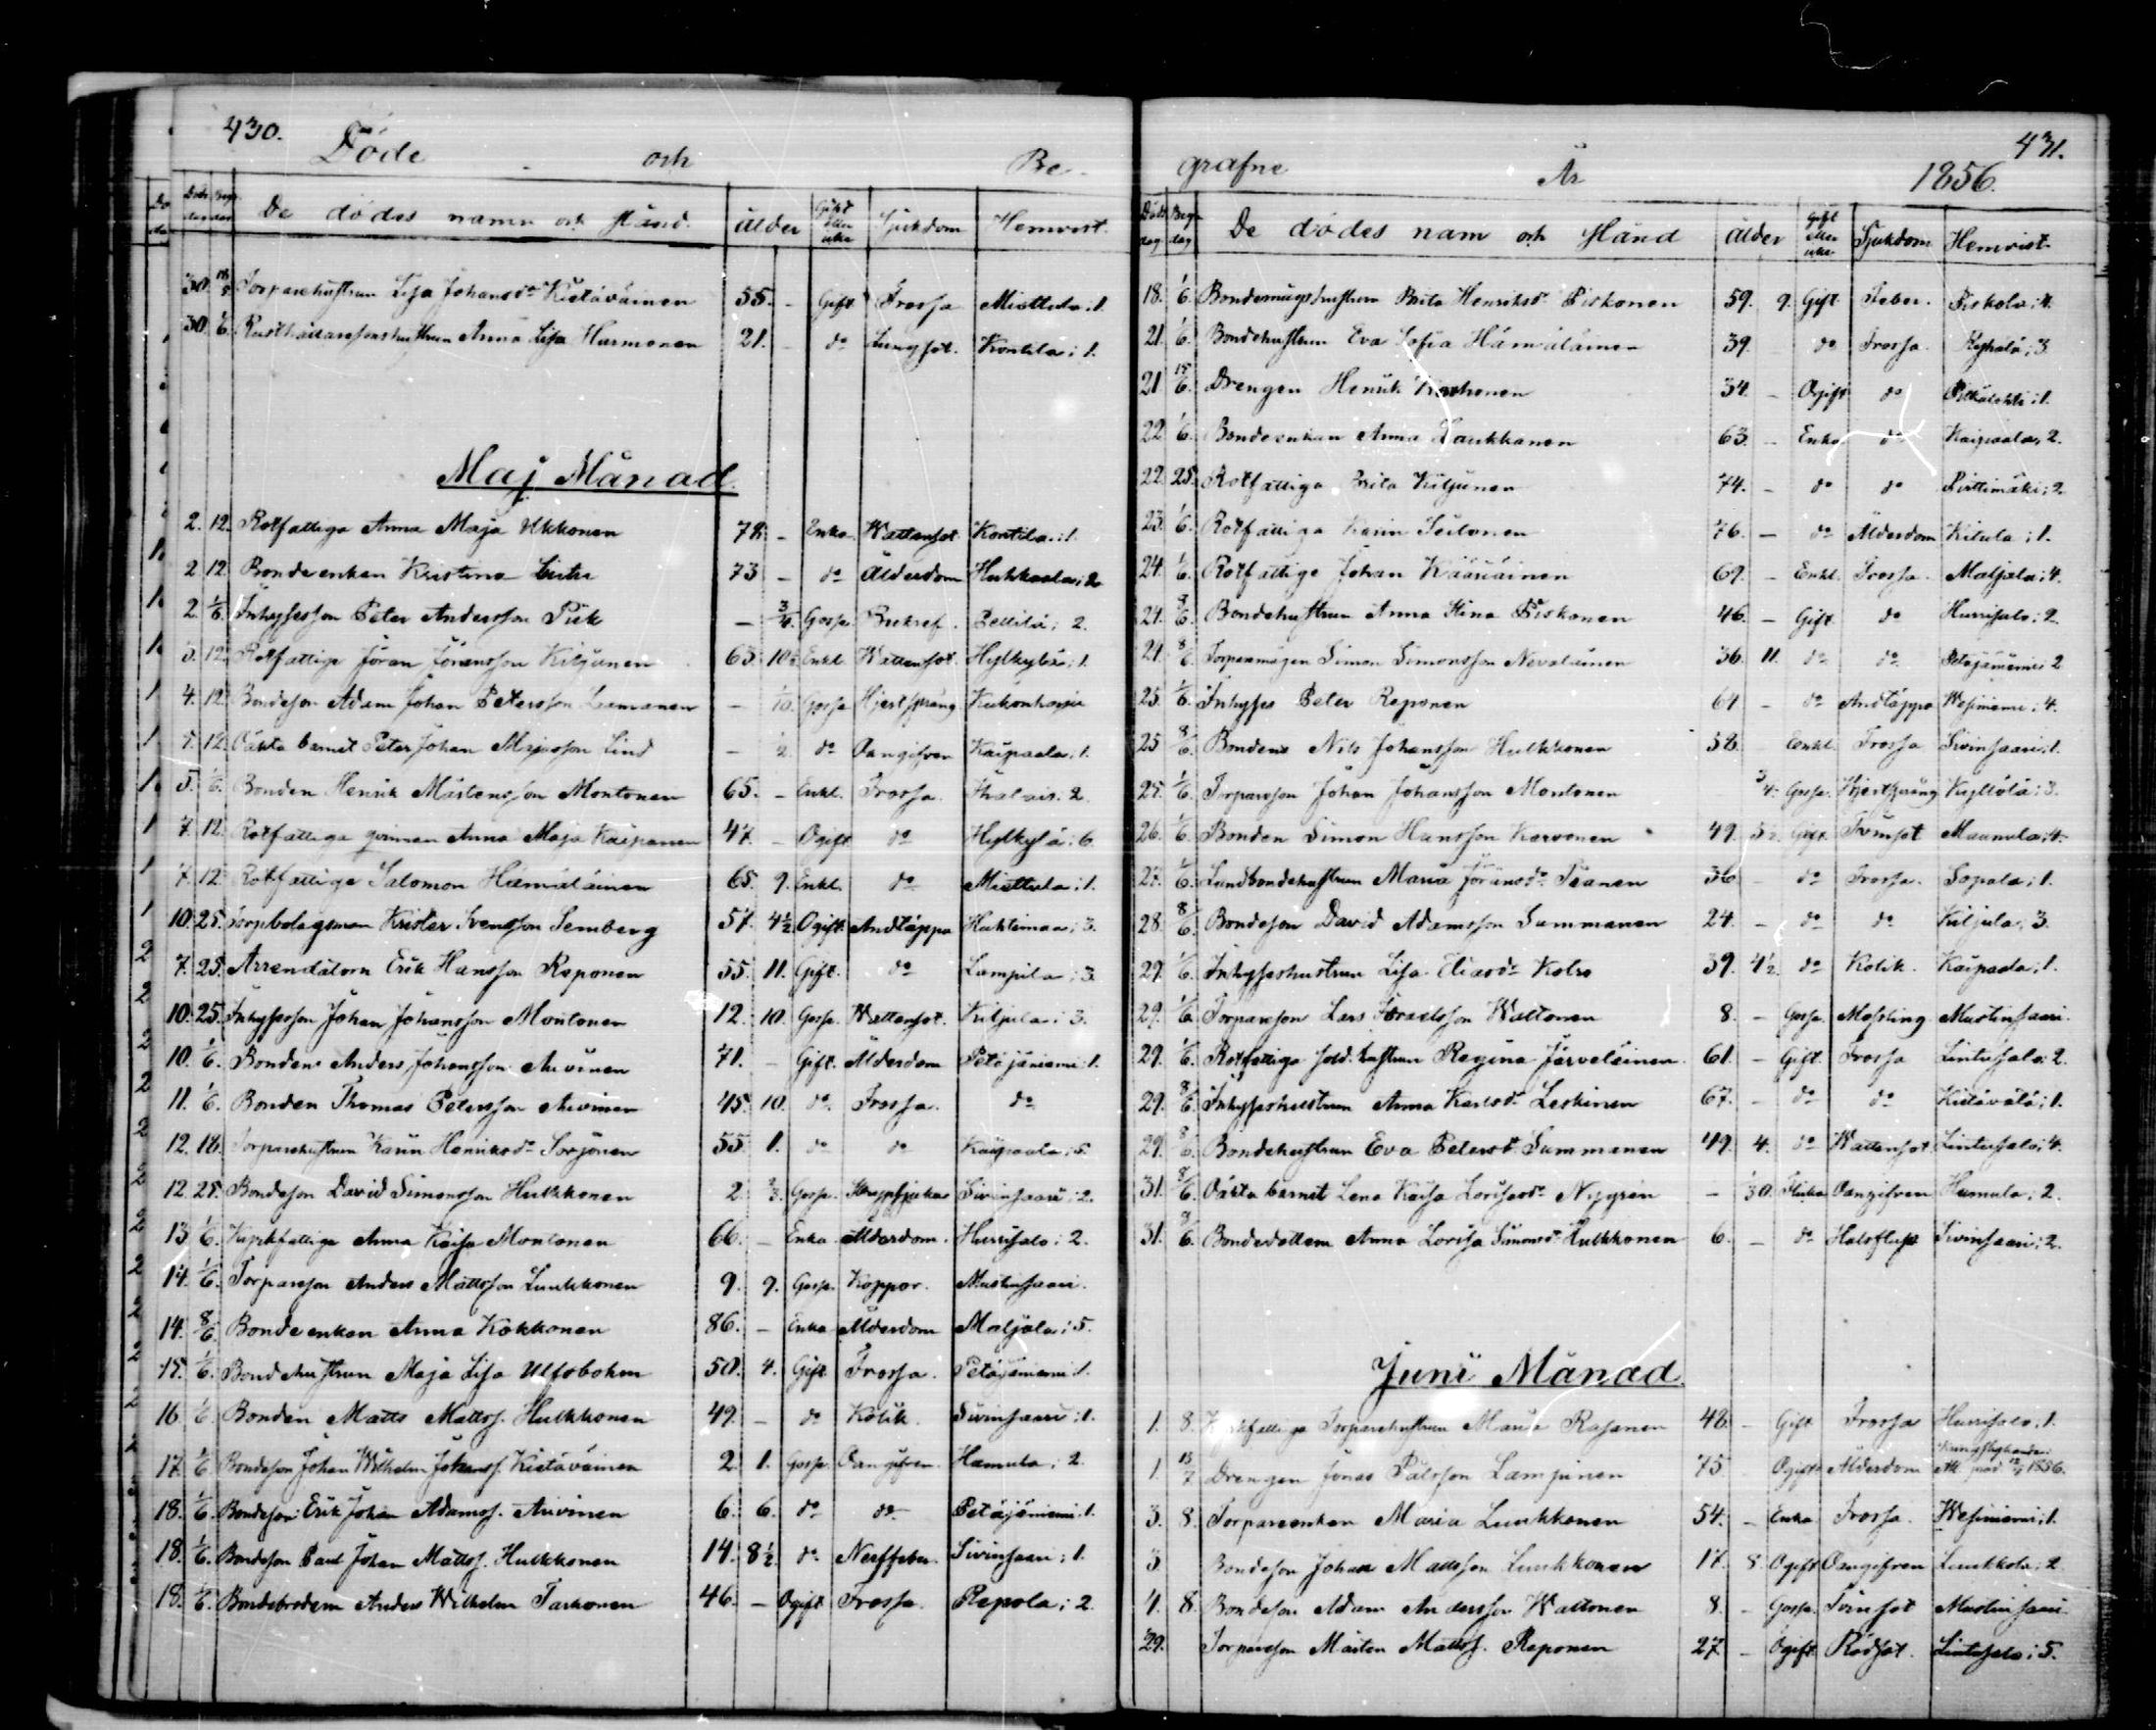 430.
Döde och Be-
Döds dag Begr. dag De dödes namn och stånd. ålder Gift eller icke Sjukdom Hemvist.
30. 18/5 Torparehustrun Lisa Johansdr Kietäväinen 55. - Gift Frossa Miettula; 1.
30. 1/6. Rusthållaresonshustrun Anna Lisa Harmonen 21. - do Lungsot. Kontila; 1.
Maj Månad.
2. 12. Rotfattiga Anna Maja Ukkonen 78. - Enka Wattensot Kontila; 1.
2 12 Bondeenkan Kristina 73 - do Ålderdom Hukkala; 2
2. 1/6. Inhysesson Peter Andersson Piik - 3/4. Gosse Pellilä; 2.
3. 12. Rotfattige Jöran Jöransson Kiljunen 63. 10 Enkl. Wattensot. Hylkylä; 1.
4. 12. Bondeson Adam Johan Petersson - 1/10. Gosse Hjertsprång
12. Oäkta barnet Peter Johan Lind - 1/2. do Oangifven Kaipaala; 1.
5. 1/6. Bonden Henrik Mårtensson Montonen 65. - Enkl. Frossa.
7. 12. Rotfattiga qvinnan Anna Maja Kaipanen 47. - Ogift do Hylkylä; 6.
7. 12. Rotfattige Salomon Hämäläinen 65. 9. Enkl. do Miettula; 1.
10. 25. Torpbolagsman Krister Svensson Semberg 57. 4½ Ogift. Andtäppa Huhtimaa; 3.
7. 25. Arrendatorn Erik Hansson Reponen 55. 11. Gift. do Lampila; 3.
10. 25. Inhysesson Johan Johansson Montonen 12. 10. Gosse. Wattensot. Kiljula; 3.
10. 1/6. Bonden Anders Johansson Auvinen 71. - Gift. Ålderdom Petäjäniemi; 1.
11. 1/6. Bonden Thomas Petersson Auvinen 45. 10. do. Frossa. do
12. 18. Torparehustrun Karin Henriksdr Sorjonen 55 1. do do Kaipaala; 5.
12. 25. Bondeson David Simonsson Hulkkonen 2. 2/3. Gosse. Strypsjukan Sivinsaari; 2.
13 1/6. Kyrkfattiga Anna Kaisa Montonen 66. - Enka Ålderdom. Hurrisalo; 2.
14. 1/6. Torpareson Anders Mattsson Luukkonen 9. 9. Gosse. Koppor. Mustinsaari.
14. 8/6. Bondeenkan Anna Kokkonen 86. - Enka Ålderdom Maljala; 5.
15. 1/6. Bondehustrun Maja Lisa Ulfsbohm 50. 4. Gift Frossa. Petäjäniemi; 1.
16. 1/6. Bonden Matts Mattss. Hulkkonen 49. - do Kolik. Sivinsaari; 1.
17. 1/6. Bondeson Johan Wilhelm Johanss. Kietäväinen 2. 1. Gosse. Oangifven. Hamula; 2.
18. 1/6. Bondeson Erik Johan Adamss. Auvinen 6. 6. do do Petäjäniemi. 1.
18. 1/6. Bondeson Paul Johan Mattss. Hulkkonen 14. 8½. do. Nerffeber. Sivinsaari; 1.
18. 1/6. Bondebrodern Anders Wilhelm Tarkonen 46. - Ogift Frossa. Repola; 2.
431.
grafne År 1856.
Döds dag Begr. dag De dödes namn och stånd ålder Gift eller icke Sjukdom Hemvist.
18. 1/6. Bondemågshustrun Brita Henriksd. Piskonen 59. 9. Gift Feber. Piskola; 4.
21. 1/6. Bondehustrun Eva Sofia Hämäläinen 39. do Frossa. 3.
21 15/6. Drengen Henrik 34. - Ogift do 1.
22. 1/6. Bondeenkan Anna Laukkanen 63. - Enka do Kaipaala, 2.
22. 25. Rotfattiga Brita Kiljunen 74. - do do Pirttimäki; 2.
23. 1/6. Rotfattiga Karin Seilonen 76. - do Ålderdom Kitula; 1.
24. 1/6. Rotfattige Johan Kääriäinen 69. - Enkl. Frossa. Maljala; 4.
24. 8/6. Bondehustrun Anna Stina Piskonen 46. - Gift do Hurrisalo; 2.
24. 8/6. Torparemågen Simon Simonsson Nevalainen 36. 11. do do Petäjäniemi; 2
25. 1/6. Inhyses Peter Reponen 64 - do Andtäppa Wesiniemi; 4.
25 8/6. Bonden Nils Johansson Hulkkonen 58. Enkl. Frossa Sivinsaari; 1.
25. 1/6. Torpareson Johan Johansson Montonen 3/4. Gosse. Hjertsprång Kyllölä; 3.
26. 1/6. Bonden Simon Hansson Karvonen 49. 5½. Gift. Tvinsot Maunula; 4.
27. 1/6. Landbondehustrun Maria Jöransdr 36 - do Frossa. Sopala; 1.
28. 8/6. Bondeson David Adamsson Summanen 24. - do do Kiljula; 3.
29. 1/6. Inhyseshustrun Lisa Eliasdr Kolro 39. 4½. do Kolik. Kaipaala; 1.
29. 1/6. Torpareson Lars Israelsson Wattonen 8. - Gosse. Messling Mustinsaari.
29. 1/6. Rotfattiga sold. hustrun Regina Järveläinen 61. - Gift. Frossa Lintusalo; 2.
29. 8/6. Inhyseshustrun Anna Karlsdr Leskinen 67. - do do Kietävälä; 1.
29. 8/6. Bondehustrun Eva Petersdr Summanen 49. 4. do Wattensot Lintusalo; 4.
31. 8/6. Oäkta barnet Lena Kaisa Lovisasdr Nygrén - 1/30. Flicka Oangifven Hamula; 2.
31. 8/6. Bondedottern Anna Lovisa Simonsdr Hulkkonen 6. - do Halsfluss Sivinsaari; 2.
Juni Månad.
1. 8. Kyrkfattiga Torparehustrun Maria Rasanen 48. - Gift Frossa Hurrisalo; 1.
1. 15/7 Drengen Jonas Pålsson Lampinen 75 - Ogift Ålderdom 1856.
3. 8. Torpareenkan Maria Luukkonen 54. - Enka Frossa. Wesiniemi; 1.
3 Bondeson Johan Mattsson Luukkonen 17. 8. Ogift Oangifven Luukkola; 2.
4. 8. Bondeson Adam Andersson Wattonen 8. - Gosse. Tvinsot Mustinsaari
29. Torpareson Mårten Mattss. Reponen 27. - Ogift Rödsot. Lintusalo; 5.